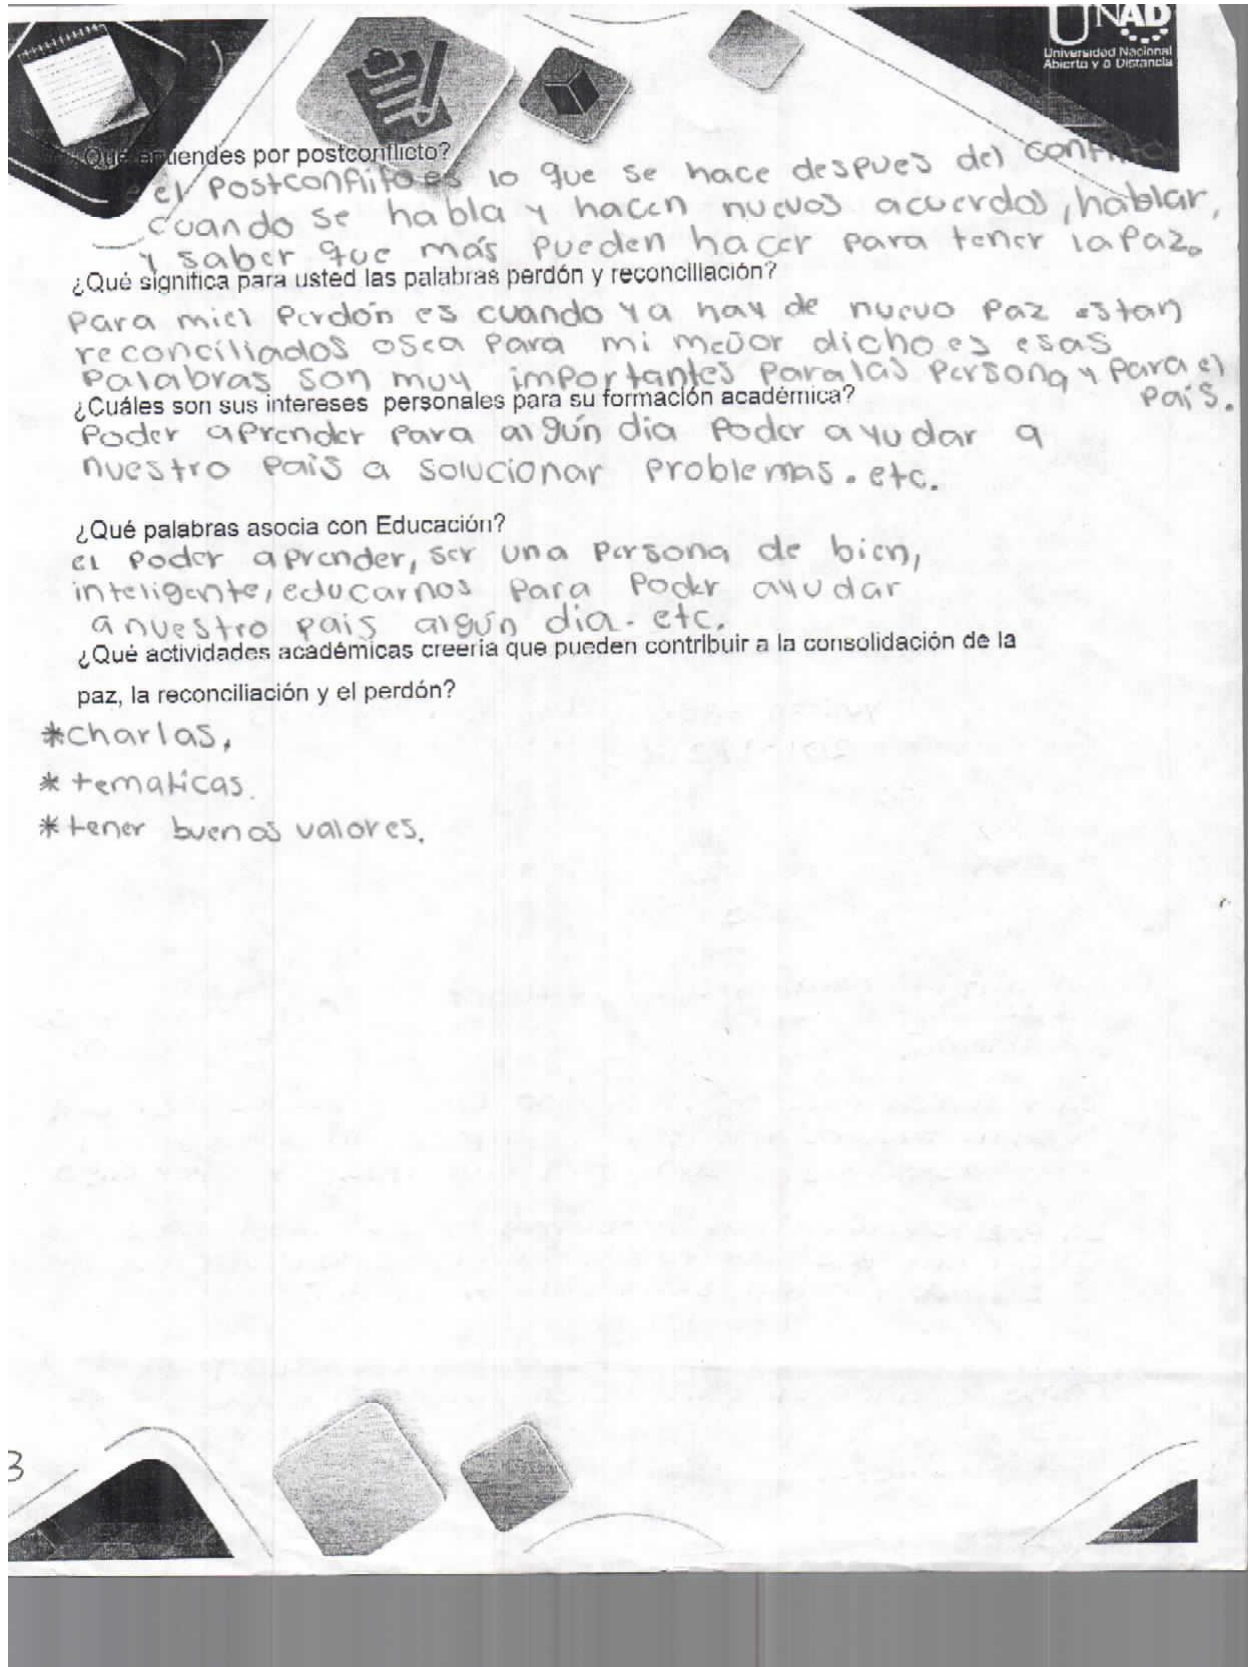 UNAD
Universidad Nacional
Abierta y a Distancia
¿Qué entiendes por postconflicto?
el Postconfiito es lo que se hace despues del conflito
cuando se habla y hacen nuevos acuerdos, hablar,
y saber que más pueden hacer para tener la Paz.
¿Qué significa para usted las palabras perdón y reconciliación?
Para mi el Perdón es cuando ya hay de nuevo Paz estan
reconciliados osea Para mi meJor dicho es esas
Palabras son muy importantes Para las Persona y Para el
País.
¿Cuáles son sus intereses personales para su formación académica?
Poder aPrender Para algún dia Poder ayudar a
nuestro País a solucionar Problemas. etc.
¿Qué palabras asocia con Educación?
el Poder aPrender, ser una Persona de bien,
inteligente, educarnos Para Poder ayudar
a nuestro país algún dia. etc.
¿Qué actividades académicas creería que pueden contribuir a la consolidación de la
paz, la reconciliación y el perdón?
*charlas,
* tematicas.
* tener buenos valores.
3